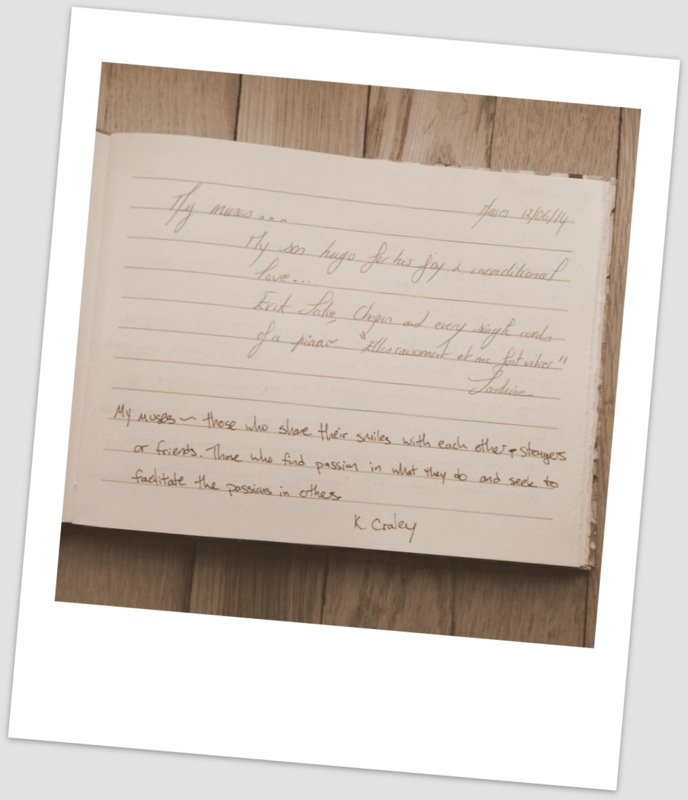 12/06/14
My muses...
My son hugo for his joy & inconditional
love...
Erik Satie, Chopin and every single cordes
of a piano "Elles caressent et me font vibrer"
My muses ~ those who share their smiles with each other, strangers
or friends. Those who find passion in what they do and seek to
facilitate the passions in others
K. Craley